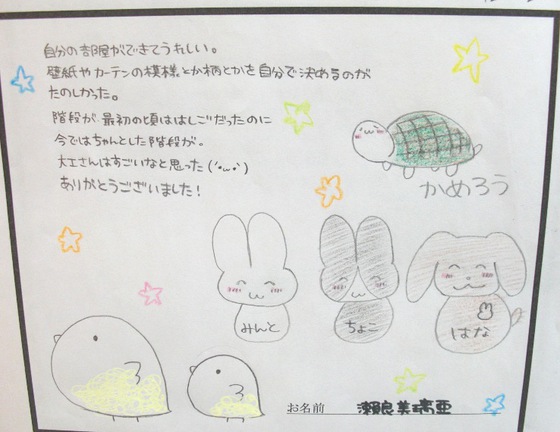 自分の部屋ができてうれしい。
壁紙やカーテンの模様とか柄とかを自分で決めるのが
たのしかった。
階段が最初の頃ははしごだったのに
今ではちゃんとした階段が。
大工さんはすごいなと思った(´•ω•`)
ありがとうございました!
かめろう
みんと
ちょこ
はな
お名前 瀬良美璃亜